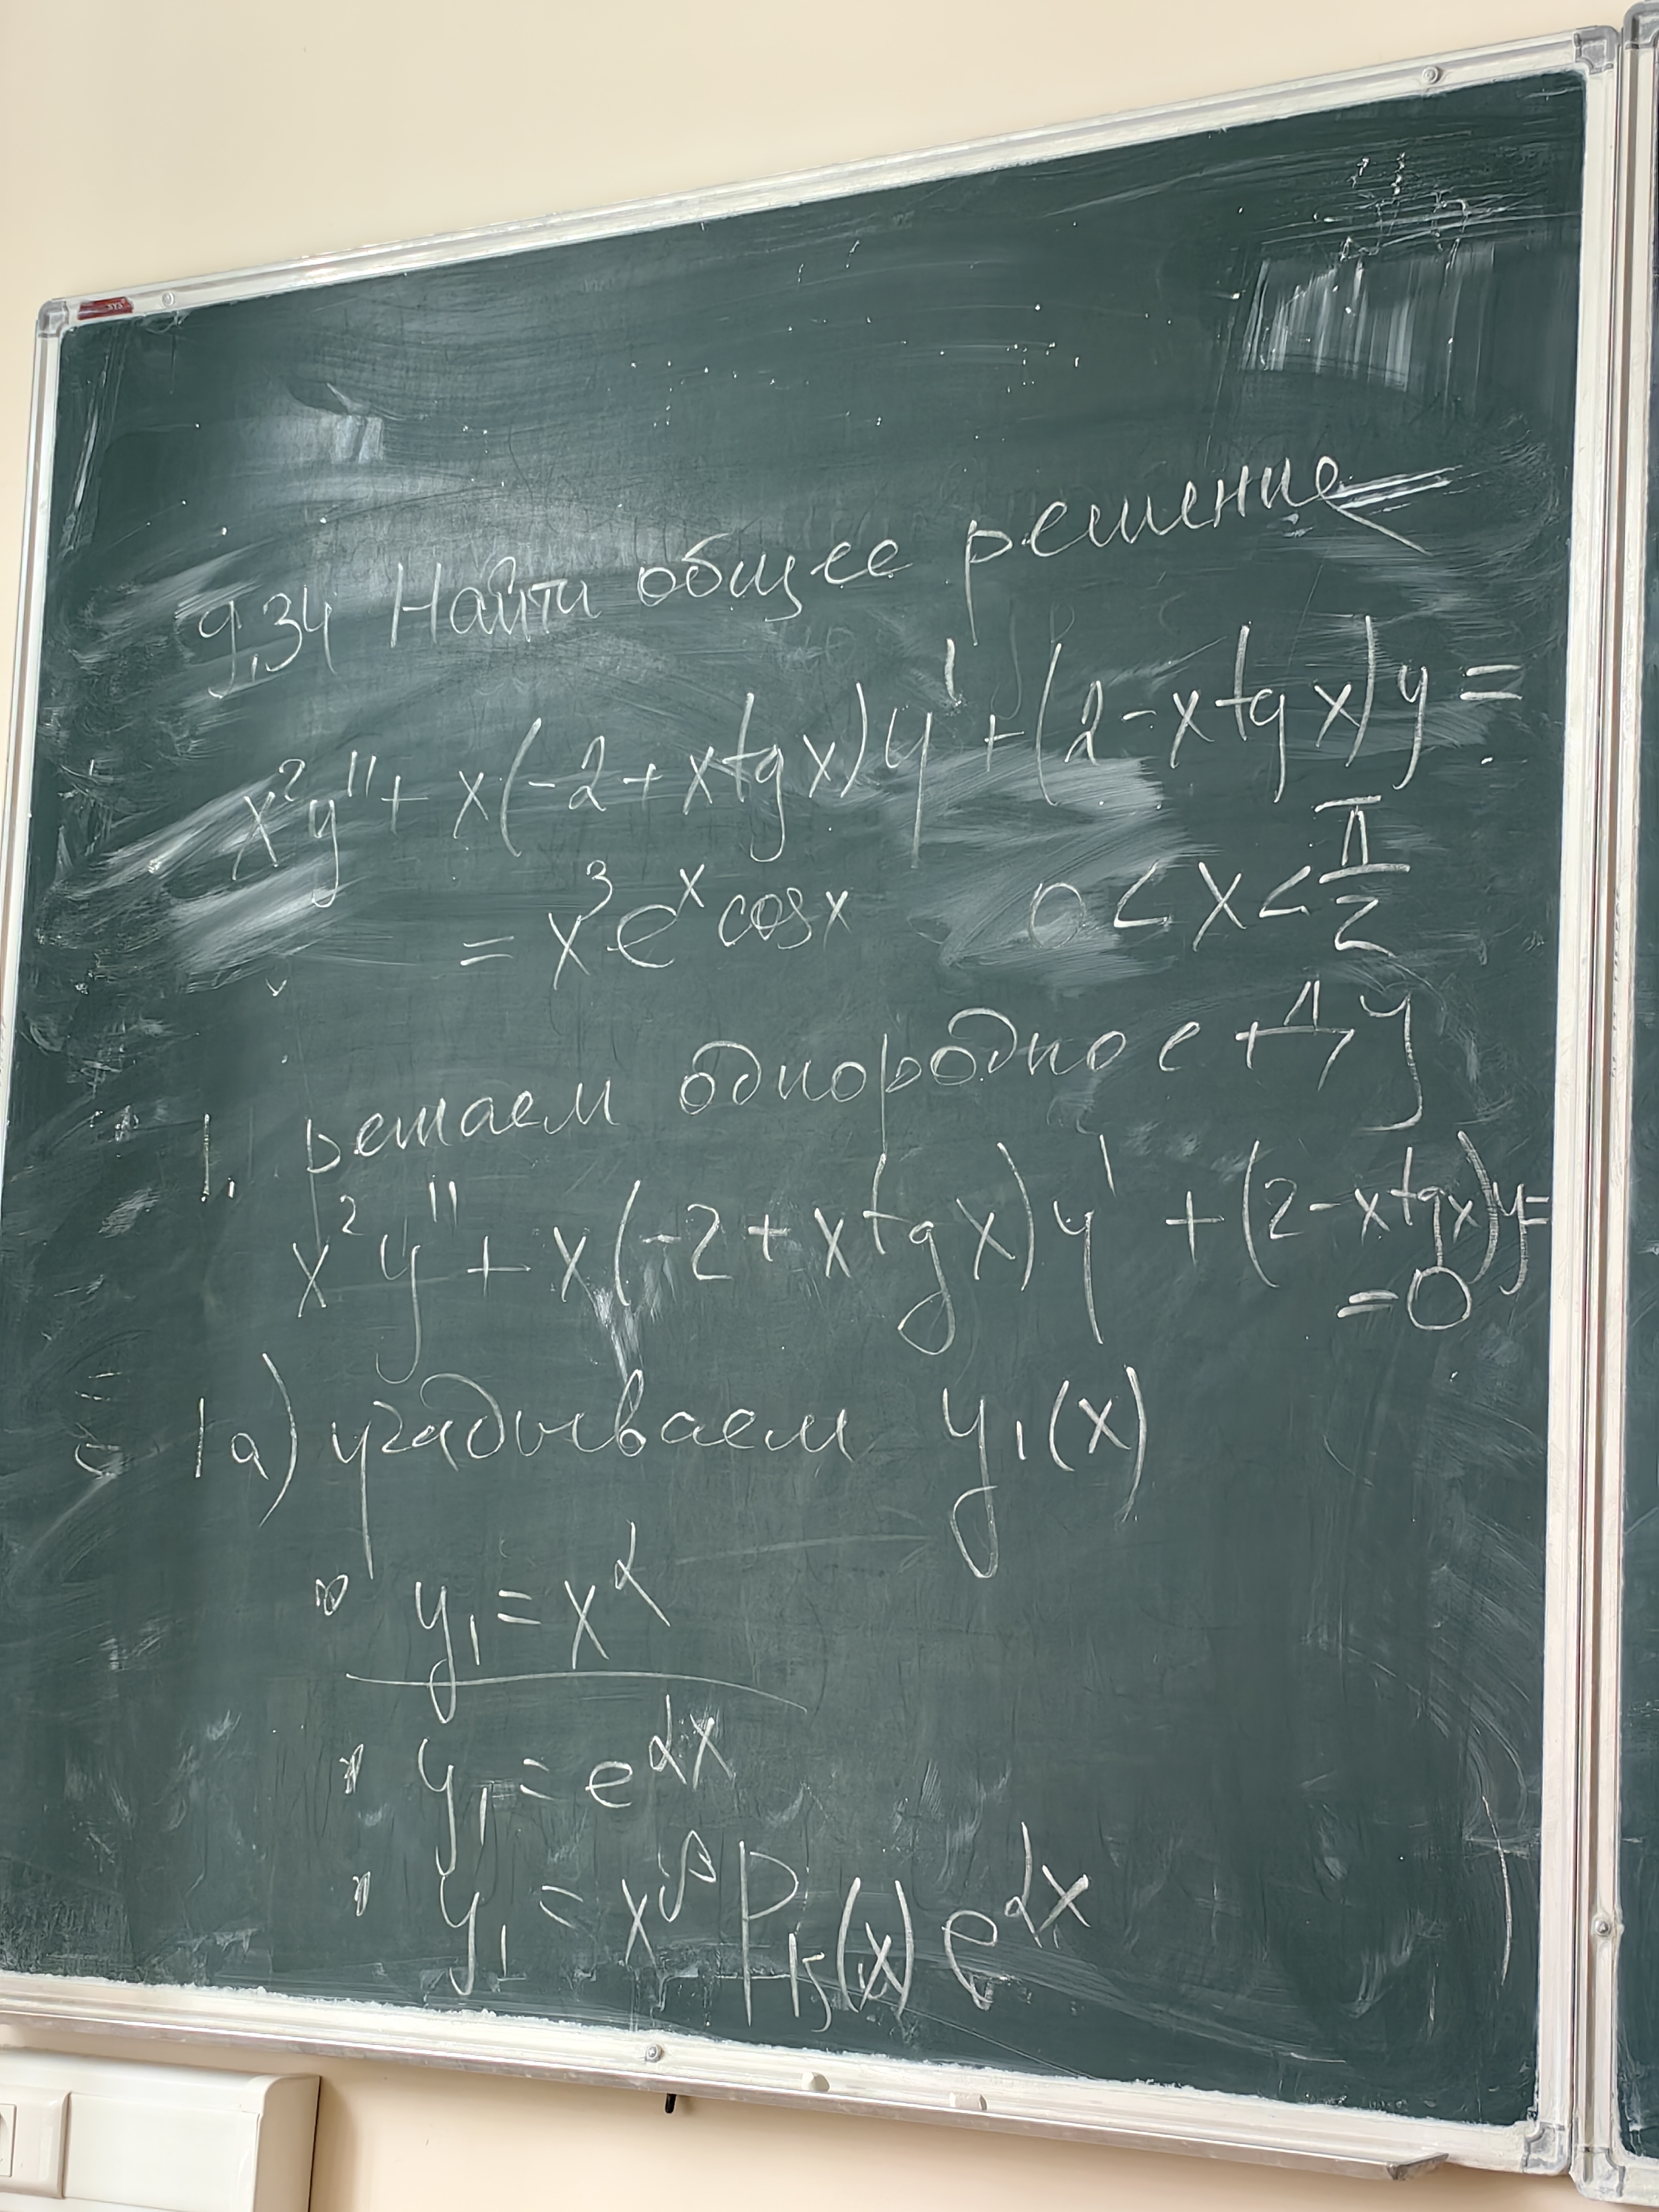 9.34 Найти общее решение
x²y'' + x(-2 + x tg x)y' + (2 - x tg x)y =
= x³eˣ cos x 0 < x < π/2
1. решаем однородное ДУ
x²y'' + x(-2 + x tg x)y' + (2 - x tg x)y =
= 0
1а) угадываем y₁(x)
• y₁ = x^α
• y₁ = e^(αx)
• y₁ = x^β P₁₅(x) e^(αx)